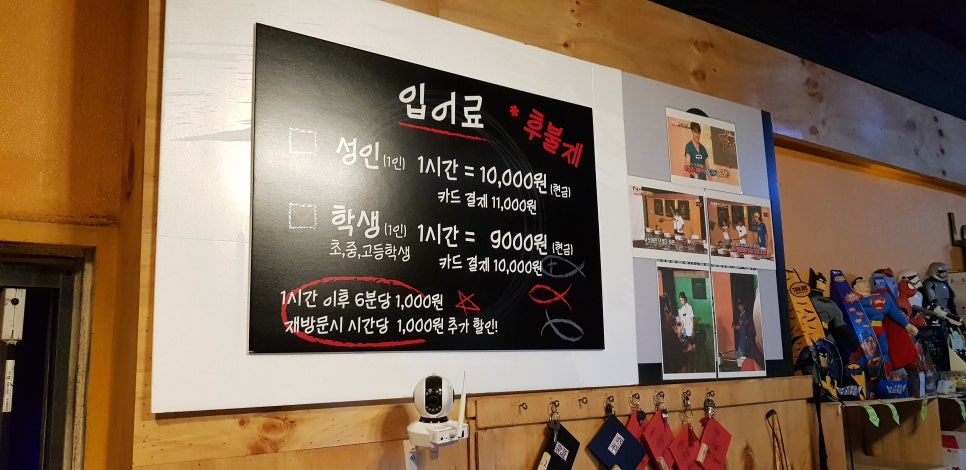 입어료
* 후불제
성인(1인) 1시간 = 10,000원(현금)
카드 결제 11,000원
학생(1인) 1시간 = 9000원(현금)
초,중,고등학생 카드 결제 10,000원
1시간 이후 6분당 1,000원
재방문시 시간당 1,000원 추가 할인!